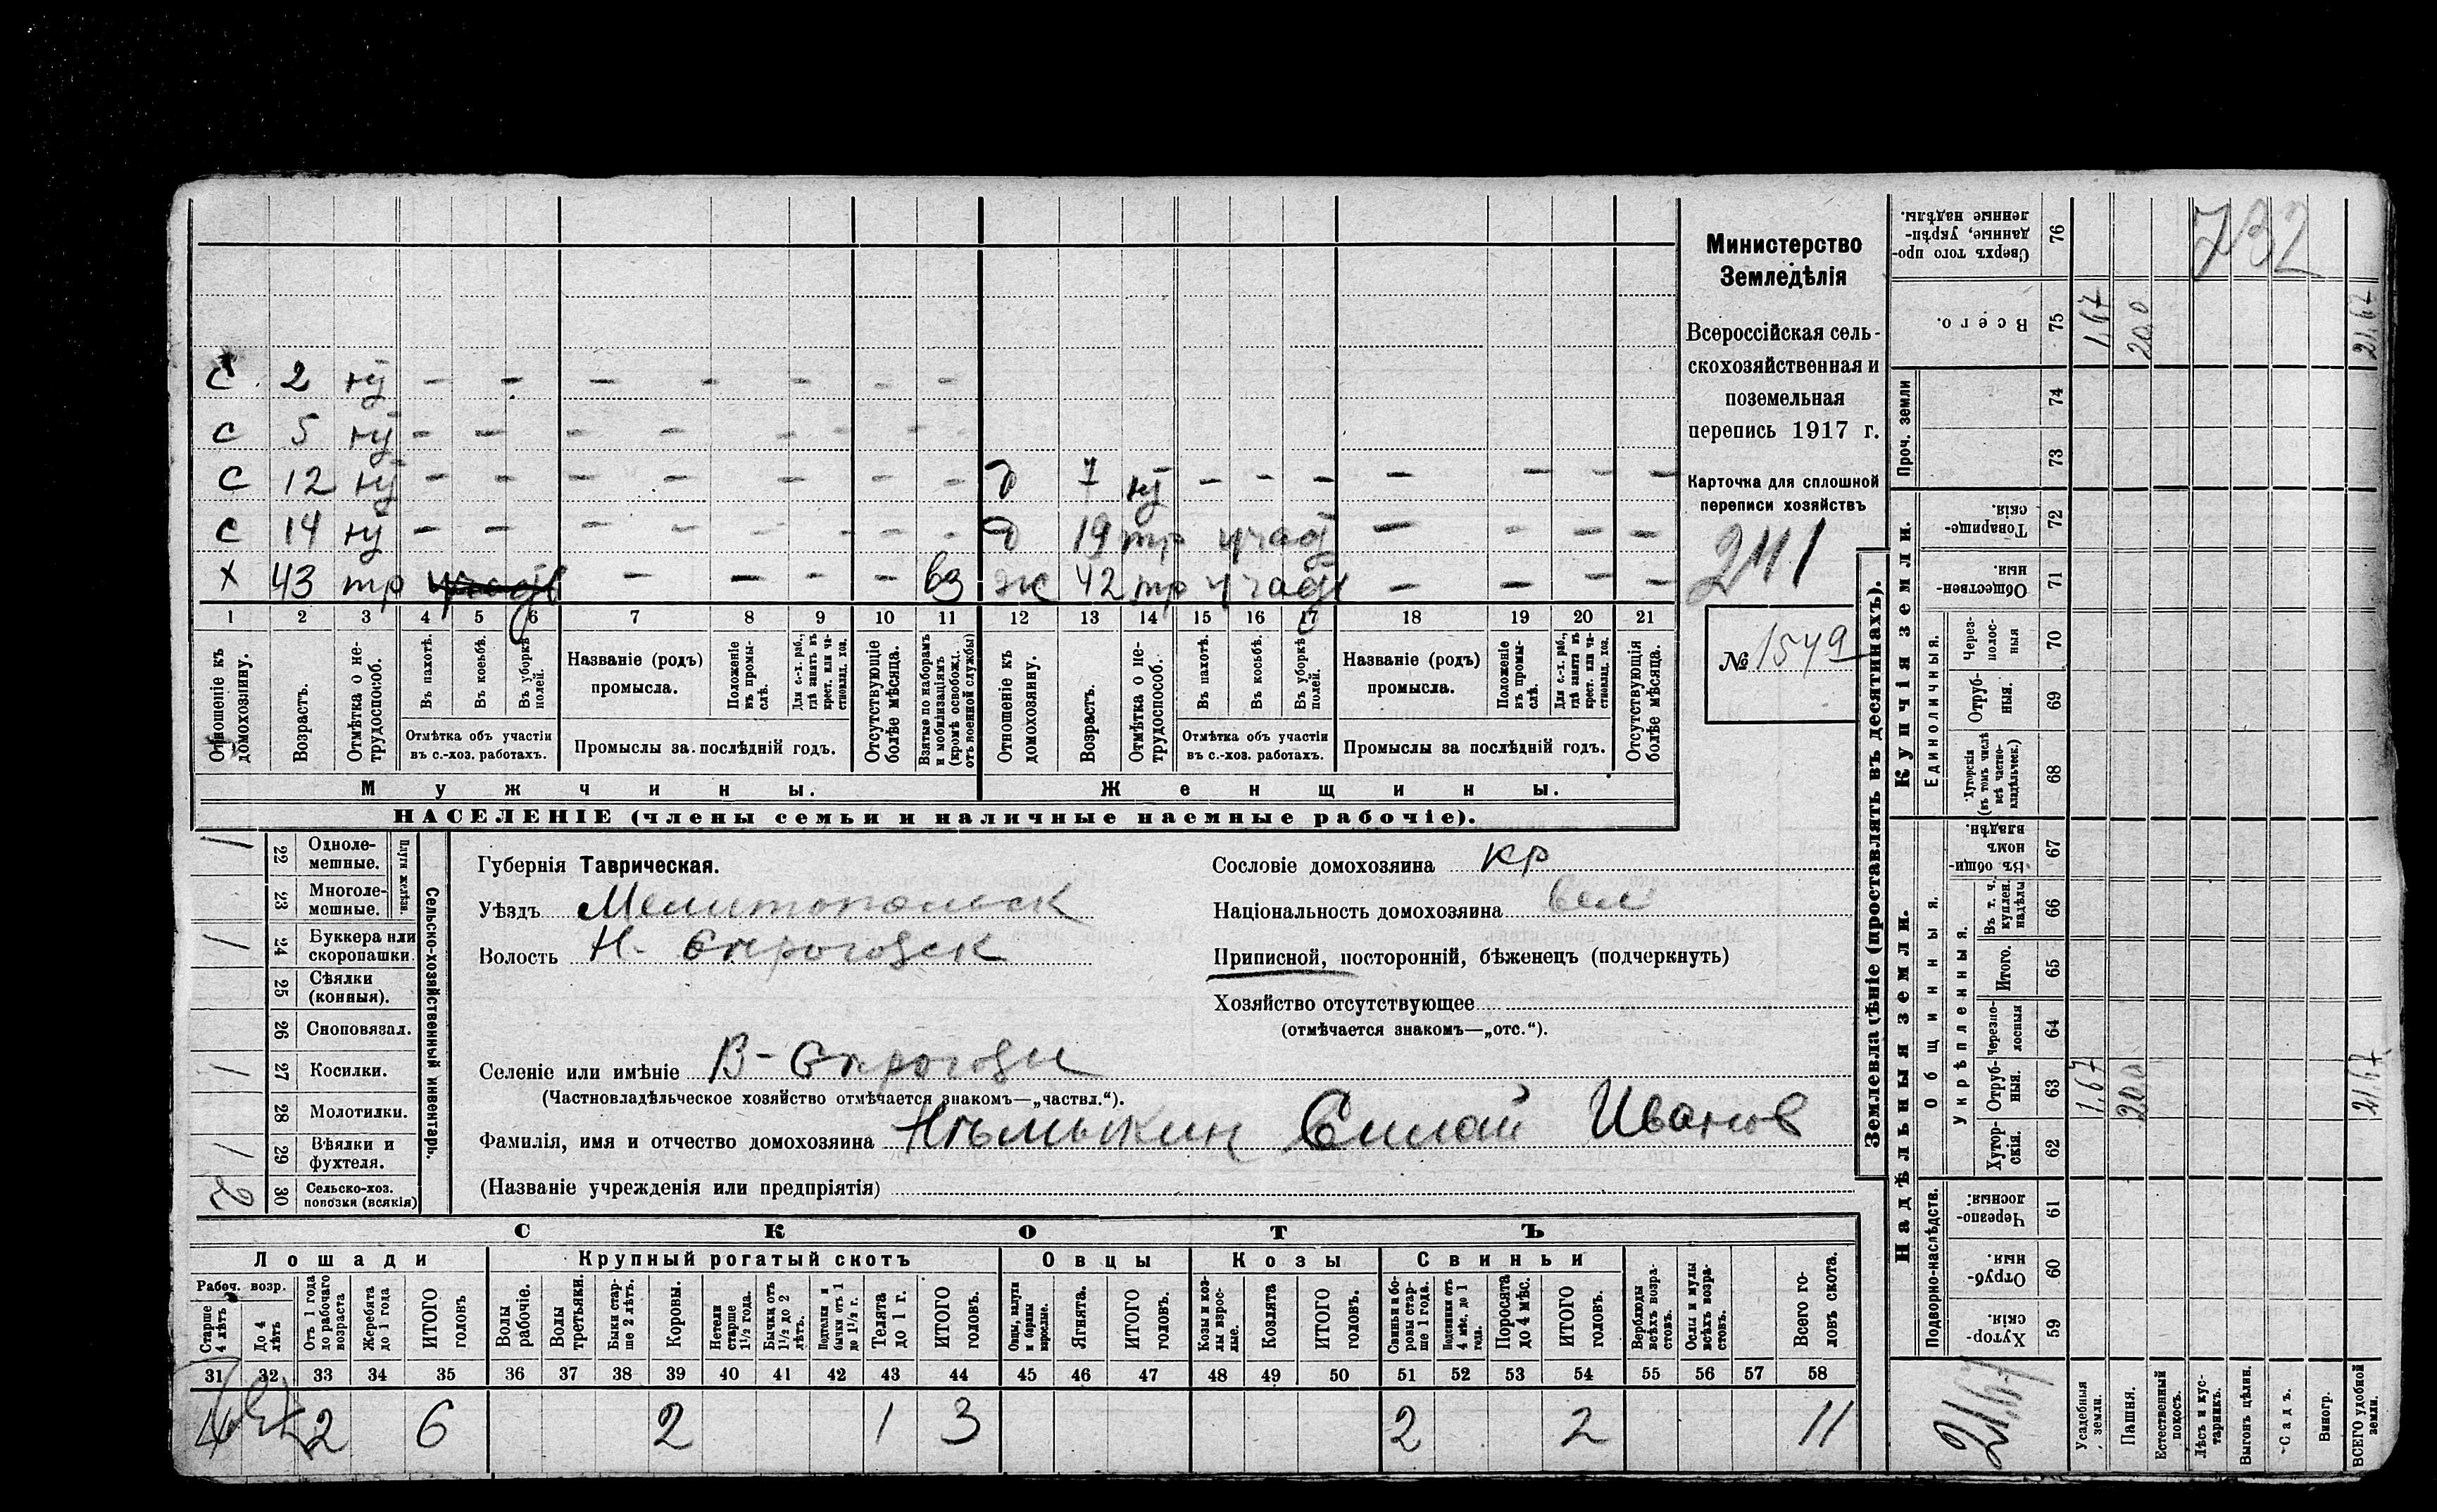 Министерство
Земледѣлія
Всероссійская сель-
скохозяйственная и
поземельная
перепись 1917 г.
Карточка для сплошной
переписи хозяйствъ
241
№ 1549
732
с 2 - - - - - - -
с 5 - - - - - - -
с 12 - - - - - - - д 7 - - - - - -
с 14 - - - - - - - д 19 тр - - - -
х 43 тр - - - - вз ж 42 тр - - - -
1 2 3 4 5 6 7 8 9 10 11 12 13 14 15 16 17 18 19 20 21
Отношеніе къ домохозяину.
Возрастъ.
Отмѣтка о не-трудоспособ.
Въ пахотѣ.
Въ косьбѣ.
Въ уборкѣ полей.
Отмѣтка объ участіи
въ с.-хоз. работахъ.
Названіе (родъ)
промысла.
Положеніе въ промы-слѣ.
Для с.-х. раб., гдѣ занятъ въ крест. или ча-стновлад. хоз.
Промыслы за послѣдній годъ.
Отсутствующіе болѣе мѣсяца.
Взятые по наборамъ и мобилизаціямъ (кромѣ освобожд. отъ военной службы)
Отношеніе къ домохозяину.
Возрастъ.
Отмѣтка о не-трудоспособ.
Въ пахотѣ.
Въ косьбѣ.
Въ уборкѣ полей.
Отмѣтка объ участіи
въ с.-хоз. работахъ.
Названіе (родъ)
промысла.
Положеніе въ промы-слѣ.
Для с.-х. раб., гдѣ заняти въ крест. или ча-стновлад. хоз.
Промыслы за послѣдній годъ.
Отсутствующія болѣе мѣсяца.
Мужчины. Женщины.
НАСЕЛЕНІЕ (члены семьи и наличные наемные рабочіе).
Сельско-хозяйственный инвентарь.
Плуги желѣзн.
1 22 Одноле-мешные.
23 Многоле-мешные.
1 24 Буккера или скоропашки.
25 Сѣялки (конныя).
26 Сноповязал.
1 27 Косилки.
28 Молотилки.
1 29 Вѣялки и фухтеля.
2 30 Сельско-хоз. повозки (всякія)
Губернія Таврическая.
Уѣздъ Мелитопольск
Волость Н-
Селеніе или имѣніе В-
(Частновладѣльческое хозяйство отмѣчается знакомъ—„частвл.“).
Фамилія, имя и отчество домохозяина Иванов
(Названіе учрежденія или предпріятія)
Сословіе домохозяина кр
Національность домохозяина вел
Приписной, посторонній, бѣженецъ (подчеркнуть)
Хозяйство отсутствующее
(отмѣчается знакомъ—„отс.“).
СКОТЪ
Лошади Крупный рогатый скотъ Овцы Козы Свиньи
Рабоч. возр.
Старше 4 лѣтъ
До 4 лѣтъ
Отъ 1 года до рабочаго возраста
Жеребята до 1 года
ИТОГО головъ
Волы рабочіе.
Волы третьяки.
Быки стар-ше 2 лѣтъ.
Коровы.
Нетели старше 1½ года.
Бычки отъ 1½ до 2 лѣтъ.
Подтелки и бычки отъ 1 до 1½ г.
Телята до 1 г.
ИТОГО головъ.
Овцы, валухи и бараны взрослые.
Ягнята.
ИТОГО головъ.
Козы и коз-лы взрос-лые.
Козлята
ИТОГО головъ.
Свиньи и бо-ровы стар-ше 1 года.
Подсвинки отъ 4 мѣс. до 1 года.
Поросята до 4 мѣс.
ИТОГО головъ.
Верблюды всѣхъ возра-стовъ.
Ослы и мулы всѣхъ возра-стовъ.
Всего го-ловъ скота.
31 32 33 34 35 36 37 38 39 40 41 42 43 44 45 46 47 48 49 50 51 52 53 54 55 56 57 58
2 6 2 1 3 2 2 11
Землевладѣніе (проставлять въ десятинахъ).
Надѣльныя земли.
Купчія земли.
Проч. земли
Подворно-наслѣдств.
Общинныя.
Укрѣпленныя.
Единоличныя.
59 Хутор-скія.
60 Отруб-ныя.
61 Черезпо-лосныя.
62 Хутор-скія.
63 Отруб-ныя. 1,67 20,0 21,67
64 Черезпо-лосныя
65 Итого.
66 Въ т. ч. куплен. надѣлы
67 Въ общин-номъ владѣн.
68 Хуторскія (въ томъ числѣ всѣ частно-владѣльческ.)
69 Отруб-ныя.
70 Через-полос-ныя
71 Обществен-ныя.
72 Товарище-скія.
73
74
75 Всего. 1,67 20,0 21,67
76 Сверхъ того про-данные, укрѣп-ленные надѣлы.
21,67
Усадебныя земли.
Пашня.
Естественный покосъ.
Лѣсъ и кус-тарникъ.
Выгонъ цѣлин.
Садъ.
Виногр.
ВСЕГО удобной земли.